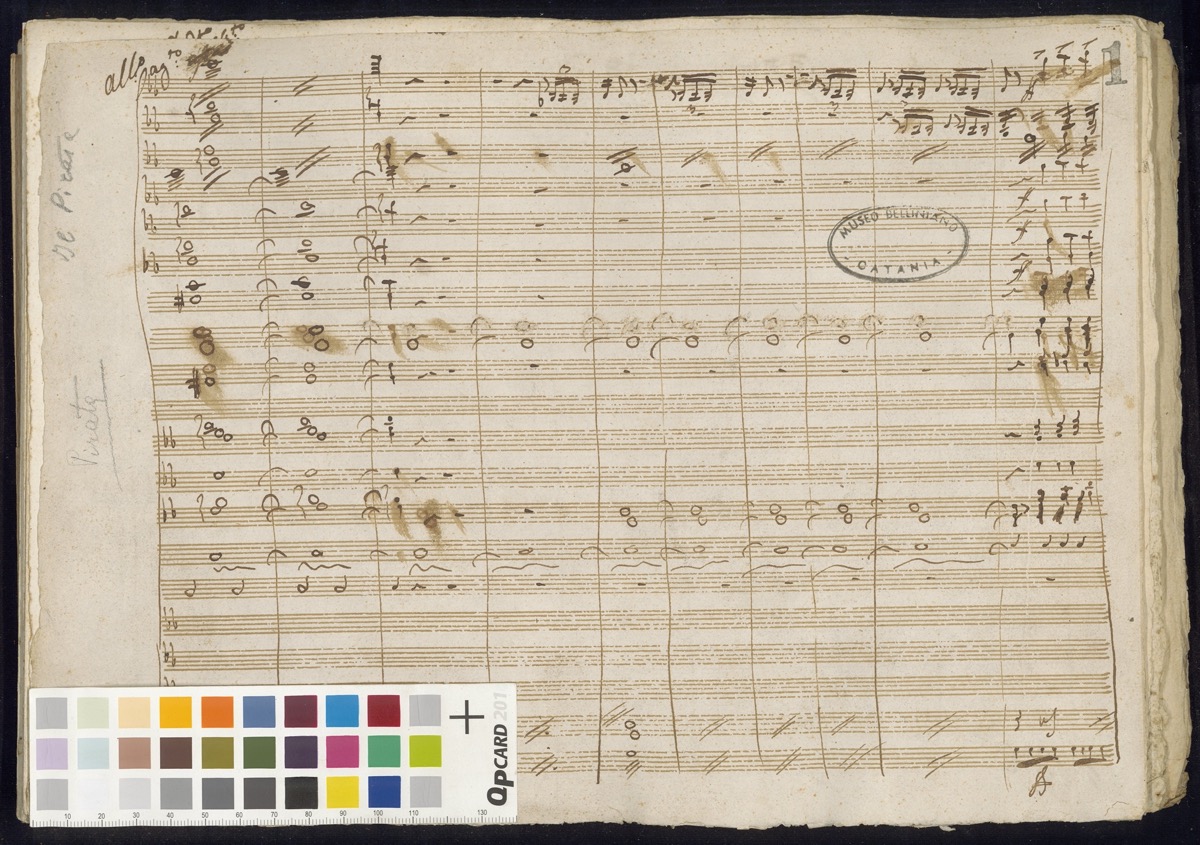 all.º
1
Il Pirata
Pirata
MUSEO BELLINIANO
CATANIA
QPCARD 201
10 20 30 40 50 60 70 80 90 100 110 130